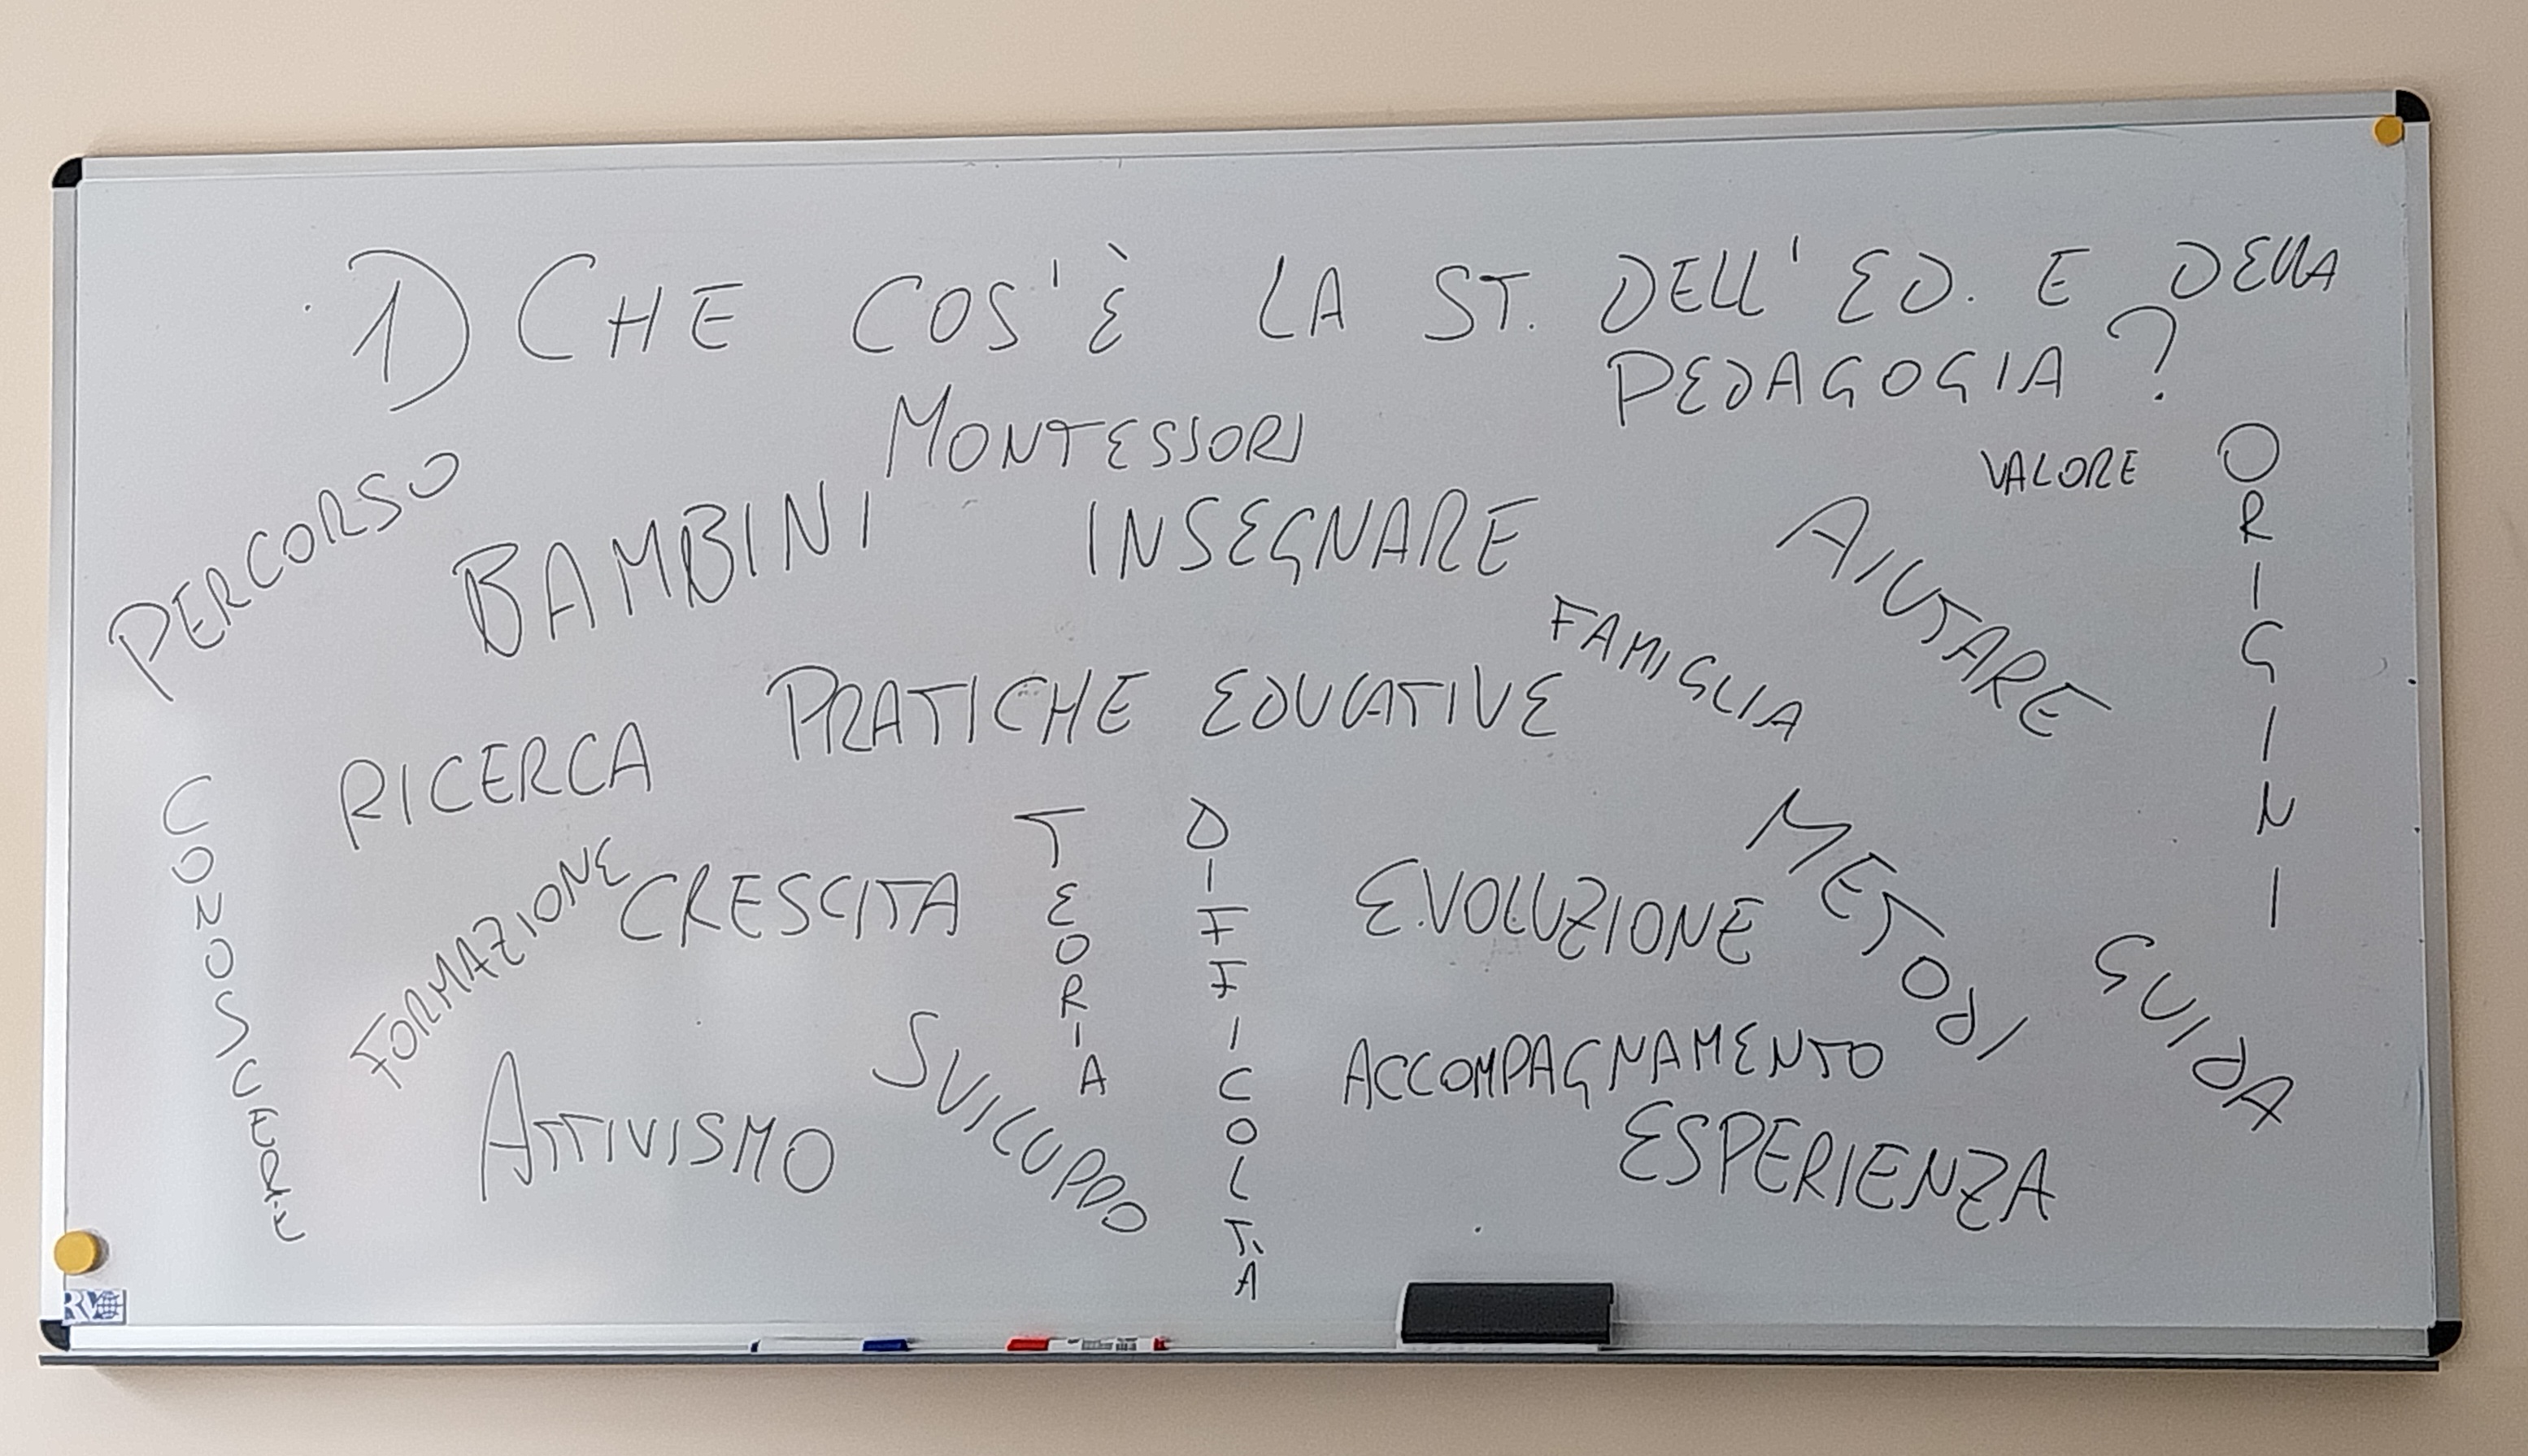 1) CHE COS'È LA ST. DELL'ED. E DELLA
PEDAGOGIA?
MONTESSORI
VALORE
ORIGINI
PERCORSO
BAMBINI
INSEGNARE
AIUTARE
FAMIGLIA
PRATICHE EDUCATIVE
RICERCA
CONOSCERE
FORMAZIONE
CRESCITA
TEORIA
DIFFICOLTÀ
EVOLUZIONE
METODI
GUIDA
ATTIVISMO
SVILUPPO
ACCOMPAGNAMENTO
ESPERIENZA
RV